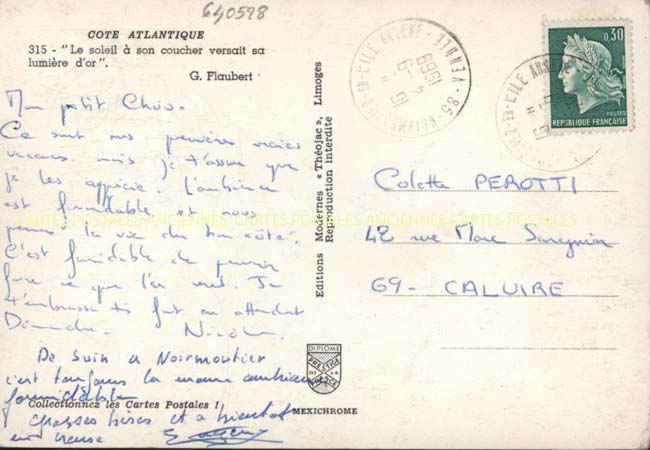 640598
COTE ATLANTIQUE
315 - "Le soleil à son coucher versait sa
lumière d'or".
G. Flaubert
Mon petit
Ce sont mes premières vraies
vacances. mais je t'assure que
je les apprécie. L'ambiance
est formidable et nous
la vie du bon côté.
C'est formidable de pouvoir
faire ce que l'on veut. Je
t'embrasse très fort en attendant
Dimanche.
De suis a Noirmoutier
c'est toujours la meme ambiance
formidable
grosses bises et a bientot
en
Collectionnez les Cartes Postales !
Editions Modernes « Théojac », Limoges
Reproduction interdite
DIPLOME
PRESTIGE
FRANCE
MEXICHROME
NOIRMOUTIER-EN-L'ILE ANNEXE - 85 - VENDEE
1969
0,30
POSTES
REPUBLIQUE FRANÇAISE
Colette PEROTTI
42 rue Marc Sangnier
69 - CALUIRE
CARTES POSTALES ANCIENNES CARTES POSTALES ANCIENNES CARTES POSTALES